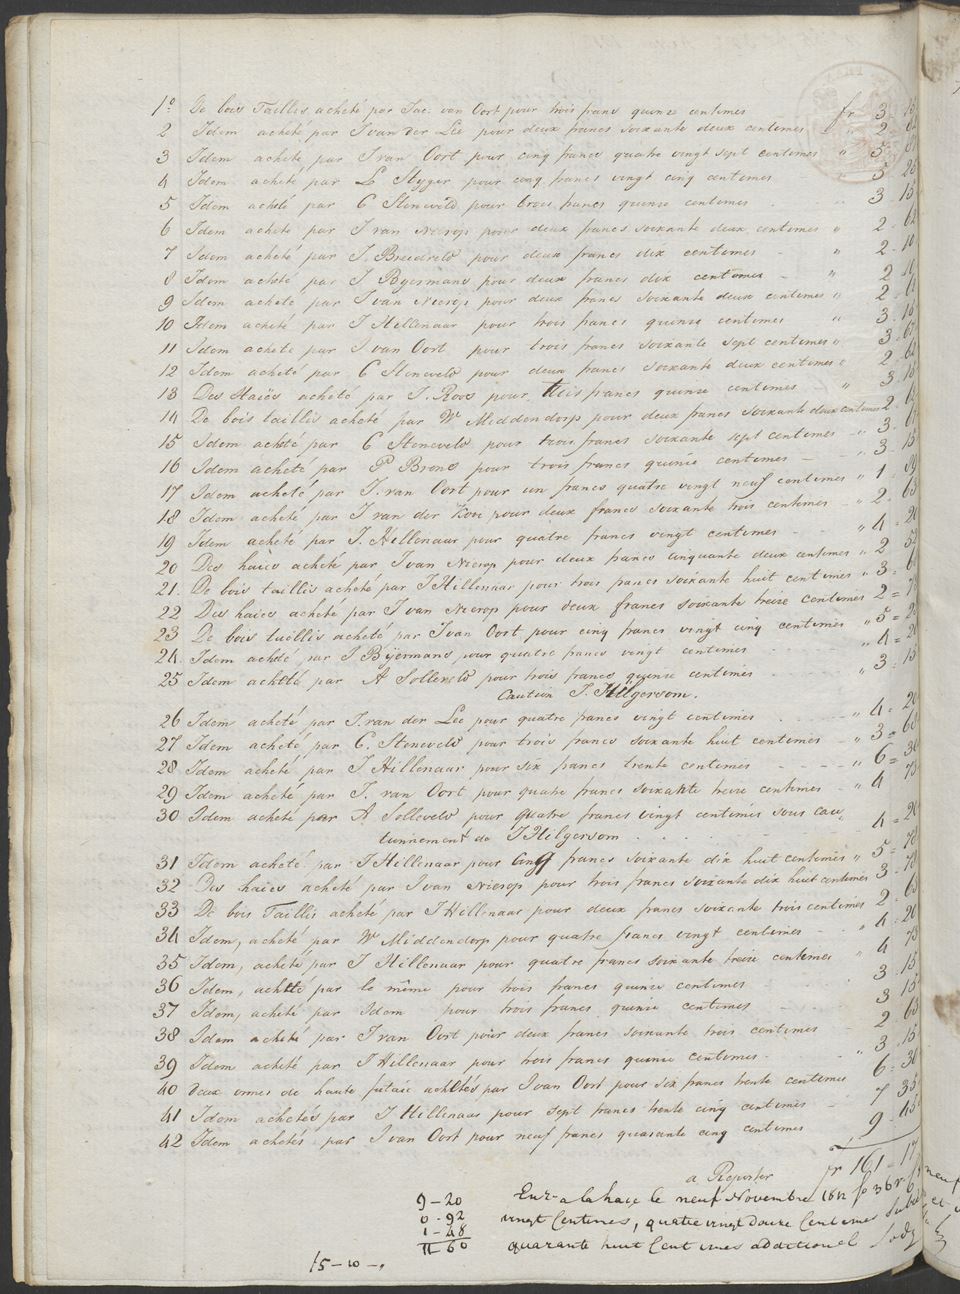 1º De bois Taillis acheté par Jac. van Oort pour trois frans quinze centimes fr 3 - 15
2 Idem acheté par J van der Lee pour deux francs soixante deux centimes " 2 - 62
3 Idem acheté par J van Oort pour cinq francs quatre vingt sept centimes " 5 -
4 Idem acheté par L Styger pour cinq francs vingt cinq centimes 5 - 25
5 Idem acheté par C Steneveld pour trois francs quinze centimes 3 - 15
6 Idem acheté par J van Nierop pour deux francs soixante deux centimes " 2 - 62
7 Idem acheté par J. Breedveld pour deux francs dix centimes " 2 - 10
8 Idem acheté par J Byermans pour deux francs dix centimes " 2 - 10
9 Idem acheté par J van Nierop pour deux francs soixante deux centimes " 2 - 62
10 Idem acheté par J Hillenaar pour trois francs quinze centimes " 3 - 15
11 Idem acheté par J van Oort pour trois francs soixante sept centimes " 3 - 67
12 Idem acheté par C Steneveld pour deux francs soixante deux centimes " 2 - 62
13 Des Haïes acheté par J. Roos pour trois francs quinze centimes " 3 - 15
14 De bois taillis acheté par W Middendorp pour deux francs soixante deux centimes 2 - 62
15 Idem acheté par C Steneveld pour trois francs soixante sept centimes " 3 - 67
16 Idem acheté par P Brons pour trois francs quinze centimes - " 3 - 15
17 Idem acheté par J. van Oort pour un francs quatre vingt neuf centimes " 1 - 89
18 Idem acheté par J van der pour deux francs soixante trois centimes - " 2 - 63
19 Idem acheté par J. Hillenaar pour quatre francs vingt centimes " 4 = 20
20 Des haies acheté par J van Nierop pour deux francs cinquante deux centimes " 2 - 52
21. De bois taillis acheté par J Hillenaar pour trois francs soixante huit centimes " 3 = 68
22 Des haies acheté par J van Nierop pour deux francs soixante treize centimes 2 = 73
23 De bois taillis acheté par J van Oort pour cinq francs vingt cinq centimes " 5 = 25
24. Idem acheté par J Bijermans pour quatre francs vingt centimes 4 = 20
25 Idem acheté par A Solleveld pour trois francs quinze centimes " 3 = 15
Caution J. Hilgersom.
26 Idem acheté par J. van der Lee pour quatre francs vingt centimes " 4 = 20
27 Idem acheté par C. Steneveld pour trois francs soixante huit centimes - " 3 = 68
28 Idem acheté par J Hillenaar pour six francs trente centimes " 6 = 30
29 Idem acheté par J. van Oort pour quatre francs soixante treize centimes - " 4 73
30 Idem acheté par A Solleveld pour quatre francs vingt centimes sous cau„
tionnement de J Hilgersom 4 = 20
31 Idem acheté par J Hillenaar pour cinq francs soixante dix huit centimes " 5 = 78
32 Des haies acheté par J van Nierop pour trois francs soixante dix huit centimes 3 - 78
33 De bois Taillis acheté par J Hillenaar pour deux francs soixante trois centimes 2 - 63
34 Idem, acheté par W Middendorp pour quatre francs vingt centimes - " 4 = 20
35 Idem, acheté par J Hillenaar pour quatre francs soixante treize centimes " 4 73
36 Idem, acheté par le même pour trois francs quinze centimes 3 15
37 Idem, acheté par Idem pour trois francs quinze centimes 3 15
38 Idem acheté par J van Oort pour deux francs soixante trois centimes - 2 63
39 Idem acheté par J Hillenaar pour trois francs quinze centimes - " 3 . 15
40 deux ormes de haute futaie achetés par J van Oort pour six francs trente centimes 6 = 30
41 Idem achetés par J Hillenaar pour sept francs trente cinq centimes - 7 35
42 Idem achetés par J van Oort pour neuf francs quarante cinq centimes 9 - 45
a Reporter fr 161 - 17
9 - 20 Enr. a la haye le neuf Novembre 1812 fo 36
0 - 92 vingt Centimes, quatre vingt douze Centimes
1 - 48 quarante huit Centimes additionel
11 60
15 - 10 -